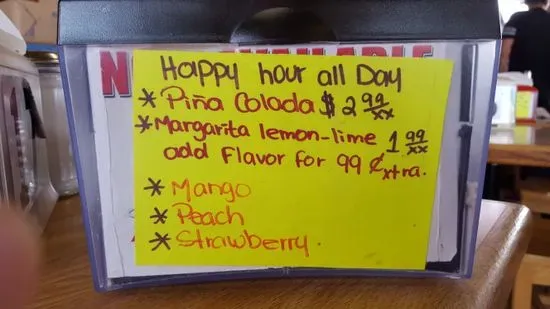 Happy hour all Day
* Piña Colada $ 2 99/xx
* Margarita lemon-lime 1 99/xx
add Flavor for 99 ¢ xtra.
* Mango
* Peach
* Strawberry.